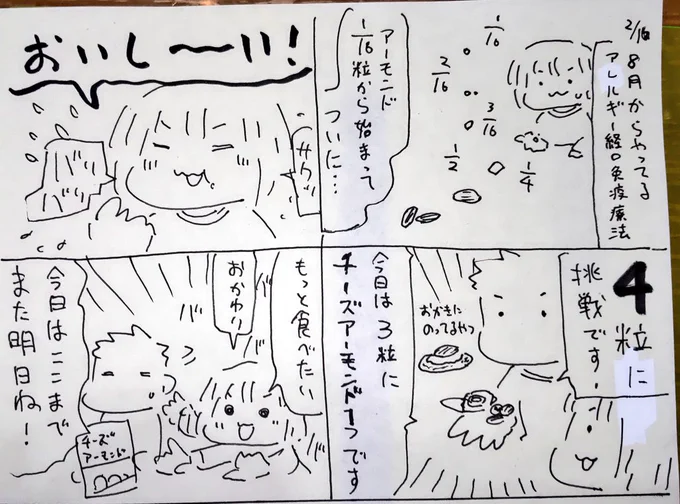 2/16
8月からやってる
アレルギー経口免疫療法
1/16
2/16
3/16
1/4
1/2
アーモンド
1/16粒から始まって
ついに…
4粒に
挑戦です!
おかきに
のってるやつ
今日は3粒に
チーズアーモンド1つです
おいし〜〜い!
サクッ
バリ
バリ
もっと食べたい
おかわり
チーズ
アーモンド
今日はここまで
また明日ね!